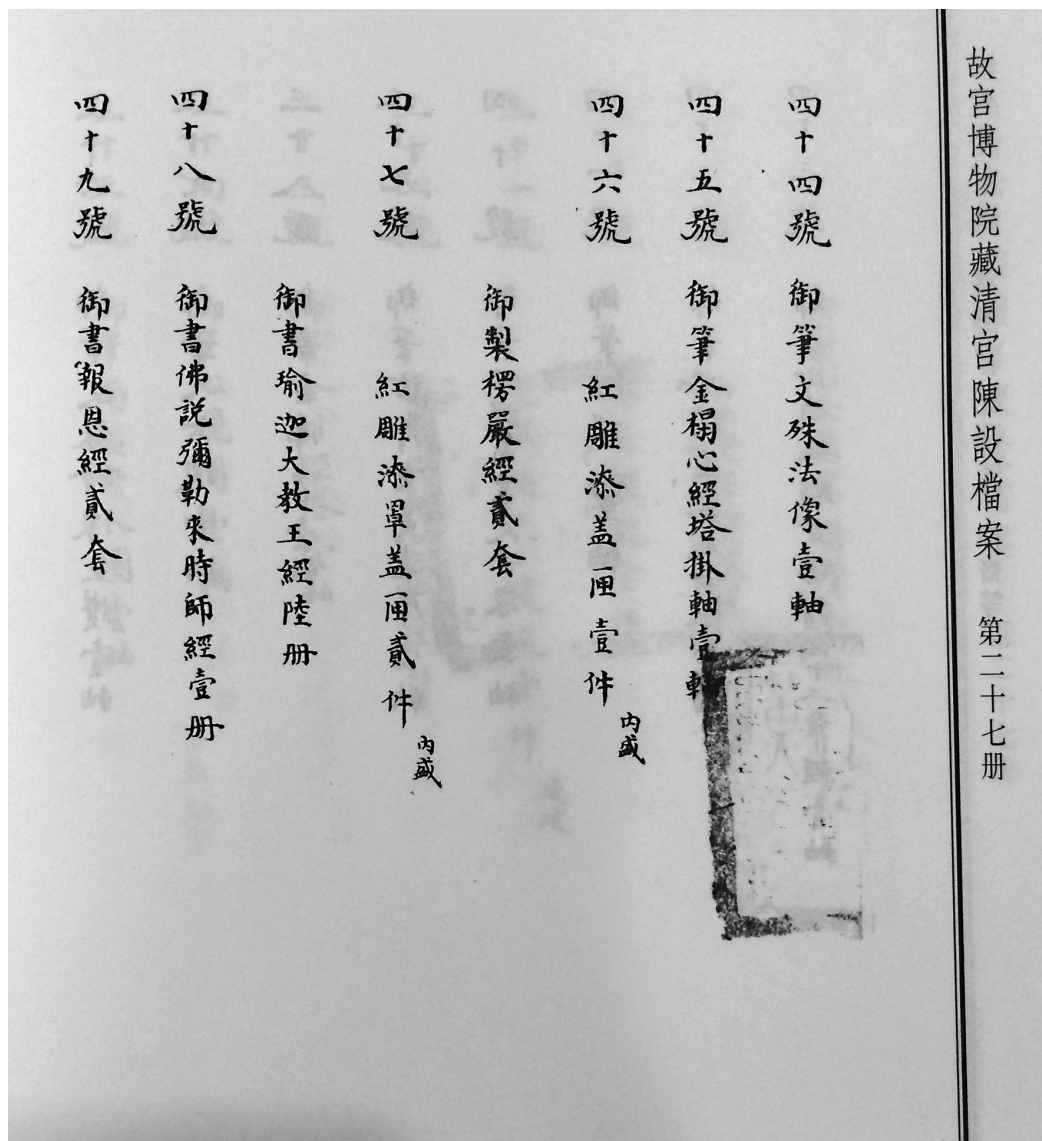 故宮博物院藏清宮陳設檔案 第二十七册
四十四號 御筆文殊法像壹軸
四十五號 御筆金榻心經塔掛軸壹軸
四十六號 紅雕漆盖匣壹件 內盛
御製楞嚴經貳套
四十七號 紅雕漆罩盖匣貳件 內盛
御書瑜迦大教王經陸册
四十八號 御書佛説彌勒来時師經壹册
四十九號 御書報恩經貳套